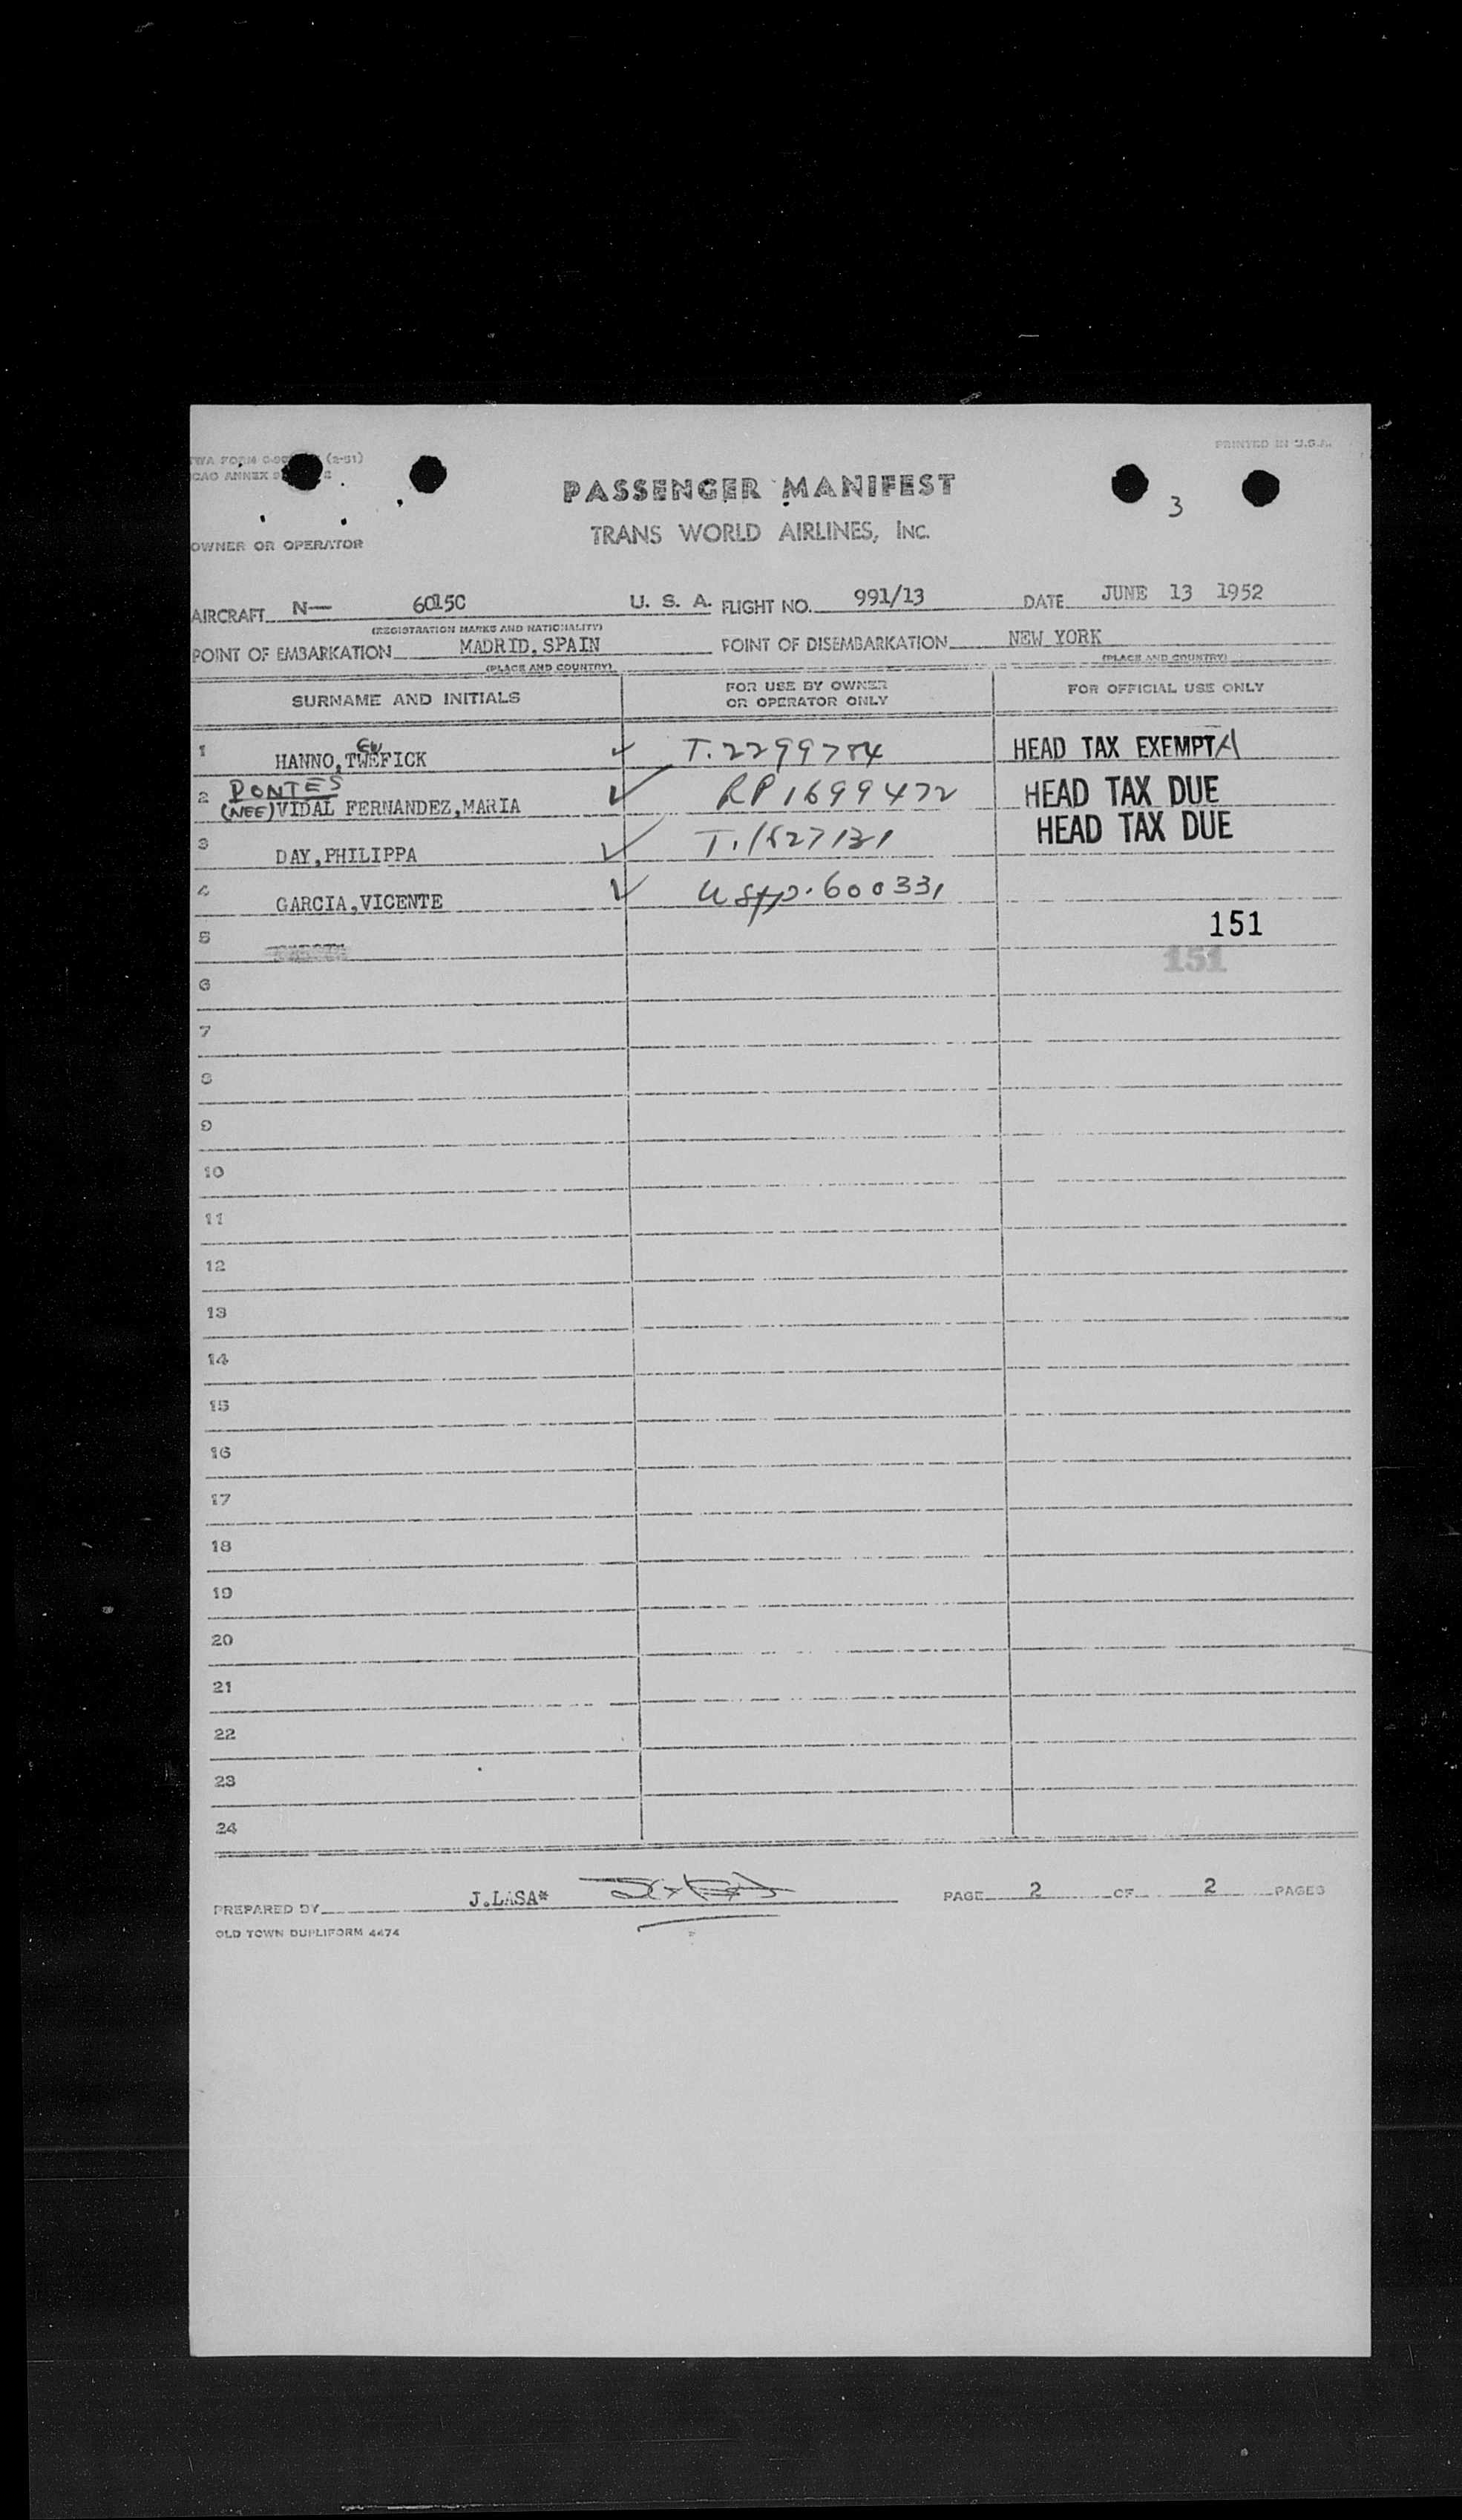 PRINTED IN U.S.A.
TWA FORM (2-51)
ICAO ANNEX 9
PASSENGER MANIFEST
3
TRANS WORLD AIRLINES, INC.
OWNER OR OPERATOR
AIRCRAFT N— 6015C U. S. A. FLIGHT NO. 991/13 DATE JUNE 13 1952
(REGISTRATION MARKS AND NATIONALITY)
POINT OF EMBARKATION MADRID, SPAIN POINT OF DISEMBARKATION NEW YORK
(PLACE AND COUNTRY) (PLACE AND COUNTRY)
SURNAME AND INITIALS FOR USE BY OWNER OR OPERATOR ONLY FOR OFFICIAL USE ONLY
1 HANNO, TWEFICK ✓ T.2299784 HEAD TAX EXEMPT A
PONTES
2 (NEE) VIDAL FERNANDEZ, MARIA ✓ RP 1699472 HEAD TAX DUE
3 DAY, PHILIPPA ✓ T.1827131 HEAD TAX DUE
4 GARCIA, VICENTE ✓ USpp. 600331
5 151
151
6
7
8
9
10
11
12
13
14
15
16
17
18
19
20
21
22
23
24
PREPARED BY J.LASA* PAGE 2 OF 2 PAGES
OLD TOWN DUPLIFORM 4474